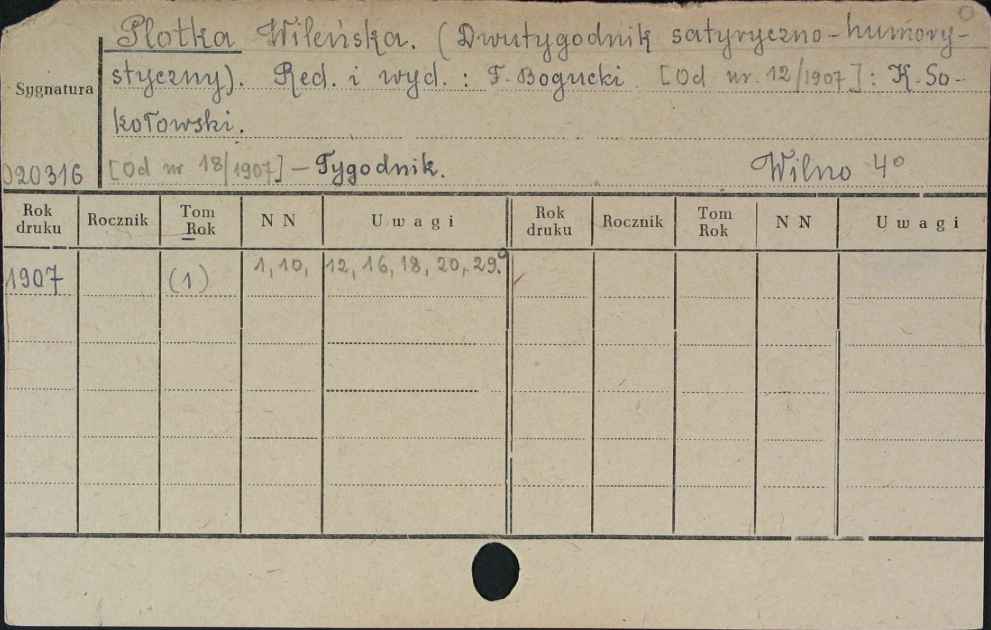 Plotka Wileńska. (Dwutygodnik satyryczno-humory-
styczny). Red. i wyd.: F. Bogucki [Od nr. 12/1907]: K. So-
kołowski.
[Od nr 18/1907] – Tygodnik. Wilno 4°
Sygnatura
020316
Rok druku Rocznik Tom Rok NN Uwagi Rok druku Rocznik Tom Rok NN Uwagi
1907 (1) 1, 10, 12, 16, 18, 20, 29.